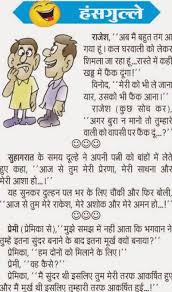 हंसगुल्ले
राजेश, ''अब मैं बहुत तंग आ
गया हूं। कल घरवाली को लेकर
शिमला जा रहा हूं...रास्ते में कहीं
खड्ड में फैंक दूंगा!''
विनोद, ''मेरी को भी ले जाना
यार, उसको भी फैंक आना।''
राजेश (कुछ सोच कर),
''अगर बुरा न मानो तो तुम्हारे
वाली को वापसी पर फैंक दूं...?''
सुहागरात के समय दूल्हे ने अपनी पत्नी को बांहों में लेते
हुए कहा, ''आज से तुम मेरी प्रेरणा, मेरी साधना और
मेरी आशा हो...!''
यह सुनकर दुल्हन पल भर के लिए चौंकी और फिर बोली,
''आज से तुम मेरे राकेश, मेरे अशोक और मेरे अमन हो...!''
प्रेमी (प्रेमिका से), ''मुझे समझ में नहीं आता कि भगवान ने
तुम्हें इतना सुंदर बनाने के बाद इतना मूर्ख क्यों बनाया?''
प्रेमिका, ''हम दोनों को मिलाने के लिए।''
प्रेमी, ''वह कैसे?''
प्रेमिका, ''मैं सुंदर थी इसलिए तुम मेरी तरफ आकर्षित हुए
और मैं मूर्ख थी इसलिए तुम्हारी तरफ आकर्षित हुई...!''